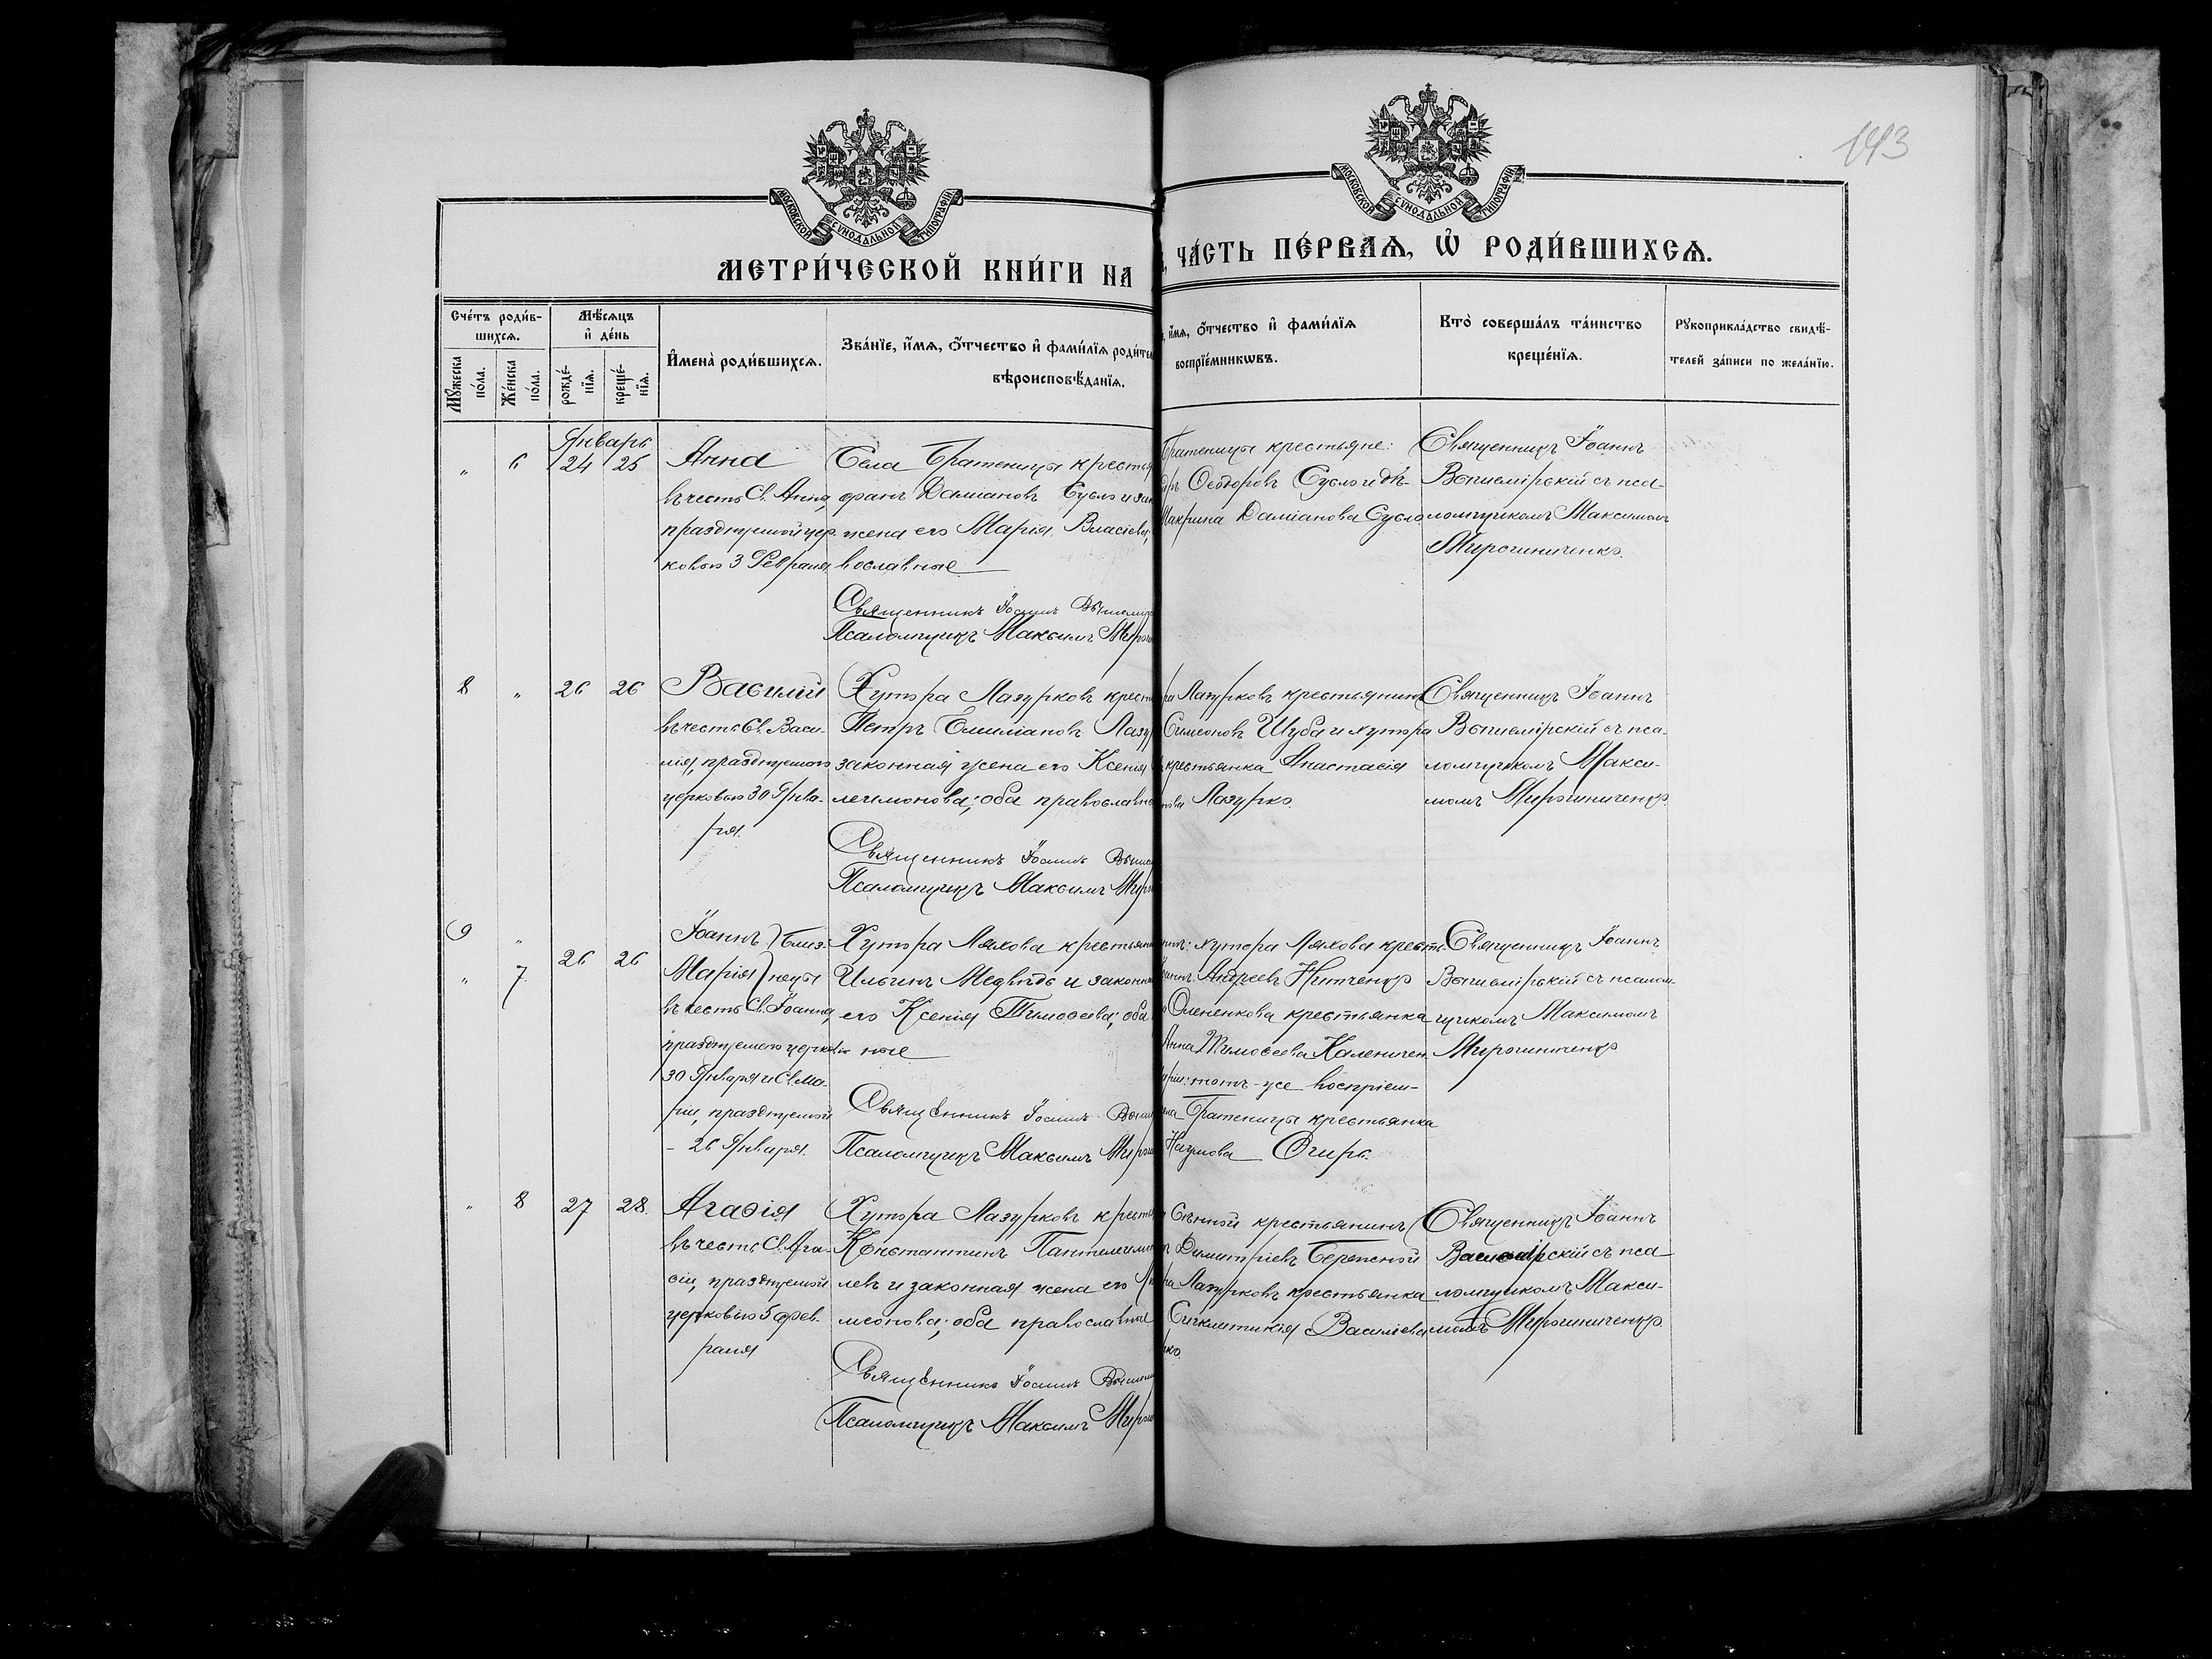 143
МОСКОВСКОЙ СѴНОДАЛЬНОЙ ТИПОГРАФІИ
МОСКОВСКОЙ СѴНОДАЛЬНОЙ ТИПОГРАФІИ
МЕТРИ́ЧЕСКОЙ КНИ́ГИ НА
ЧА́СТЬ ПЕ́РВАѦ, Ѡ҆ РОДИ́ВШИХСѦ.
Сче́тъ роди́в-
шихсѧ.
Мꙋ́жеска
по́ла.
Же́нска
по́ла.
Мѣ́сѧцъ
и҆ де́нь
рожде́-
нїѧ.
креще́-
нїѧ.
И҆мена̀ роди́вшихсѧ.
Зва́нїе, и҆́мѧ, ѻ҆́тчество и҆ фами́лїѧ роди́те
вѣроисповѣ́данїѧ.
и҆́мѧ, ѻ҆́тчество и҆ фами́лїѧ
воспрїе́мникѡвъ.
Кто̀ соверша́лъ та́инство
креще́нїѧ.
Рꙋкоприкла́дство свидѣ́-
телей за́писи по жела́нїю.
Январь
„ 6 24 25
Анна
въ честь Св. Анны,
празднуемой цер-
ковью 3 Февраля.
Села Братеницы крестья
фанъ Даміановъ Сусло и зак
жена его Марія Власіева;
вославные
Священникъ Іоаннъ
Псаломщикъ Максимъ
Братеницы крестьяне:
Ѳеодоровъ Сусло и дѣ-
Макрина Даміанова Сусло
Священникъ Іоаннъ
съ пса-
ломщикомъ Максимомъ
Мирошниченко.
8 „ 26 26
Василій
въ честь Св. Васи-
лія, празднуемаго
церковью 30 Янва-
ря.
Хутора Лазурковъ крест
Петръ Емиліановъ Лазу
законная жена его Ксенія
леимонова; оба православн
Священникъ Іоаннъ
Псаломщикъ Максимъ
ра Лазурковъ крестьянинъ
Симеоновъ Шуба и хутора
крестьянка Анастасія
нова Лазурко.
Священникъ Іоаннъ
съ пса-
ломщикомъ Макси-
момъ Мирошниченко.
9 „
„ 7 26 26
Іоаннъ } близ-
Марія } нецы
въ честь Св. Іоанна,
празднуемаго церковью
30 Января и Св. Ма-
ріи, празднуемой
- 26 Января.
Хутора Ляхова крестьян
Ильинъ Медвѣдь и законна
его Ксенія Тимоѳеева; оба
ные
Священникъ Іоаннъ
Псаломщикъ Максимъ
хутора Ляхова кресть-
Андреевъ Нитченко
Олененкова крестьянка
Анна Тимоѳеева Калениченко
тотъ-же воспріем-
Братеницы крестьянка
Наумова Огирь.
Священникъ Іоаннъ
съ псалом-
щикомъ Максимомъ
Мирошниченко
„ 8 27 28.
Агаѳія
въ честь Св. Ага-
ѳіи, празднуемой
церковью 5 фев-
раля
Хутора Лазурковъ кресть
Константинъ Пантелеимо
левъ и законная жена его
меонова; оба православные
Священникъ Іоаннъ
Псаломщикъ Максимъ
Сѣнной крестьянинъ
Димитріевъ Бережной
ра Лазурковъ крестьянка
Сигклитикія Василіева
ко.
Священникъ Іоаннъ
съ пса-
ломщикомъ Макси-
момъ Мирошниченко.